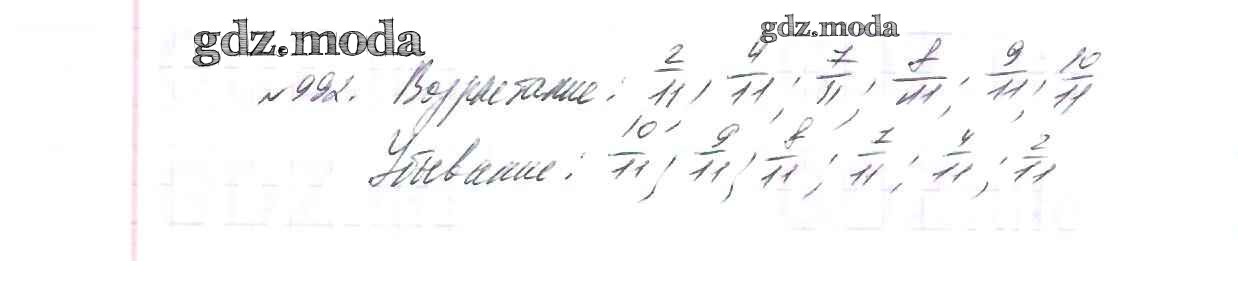 gdz.moda
gdz.moda
№992. Возрастание: 2/11; 4/11; 7/11; 8/11; 9/11; 10/11
Убывание: 10/11; 9/11; 8/11; 7/11; 4/11; 2/11